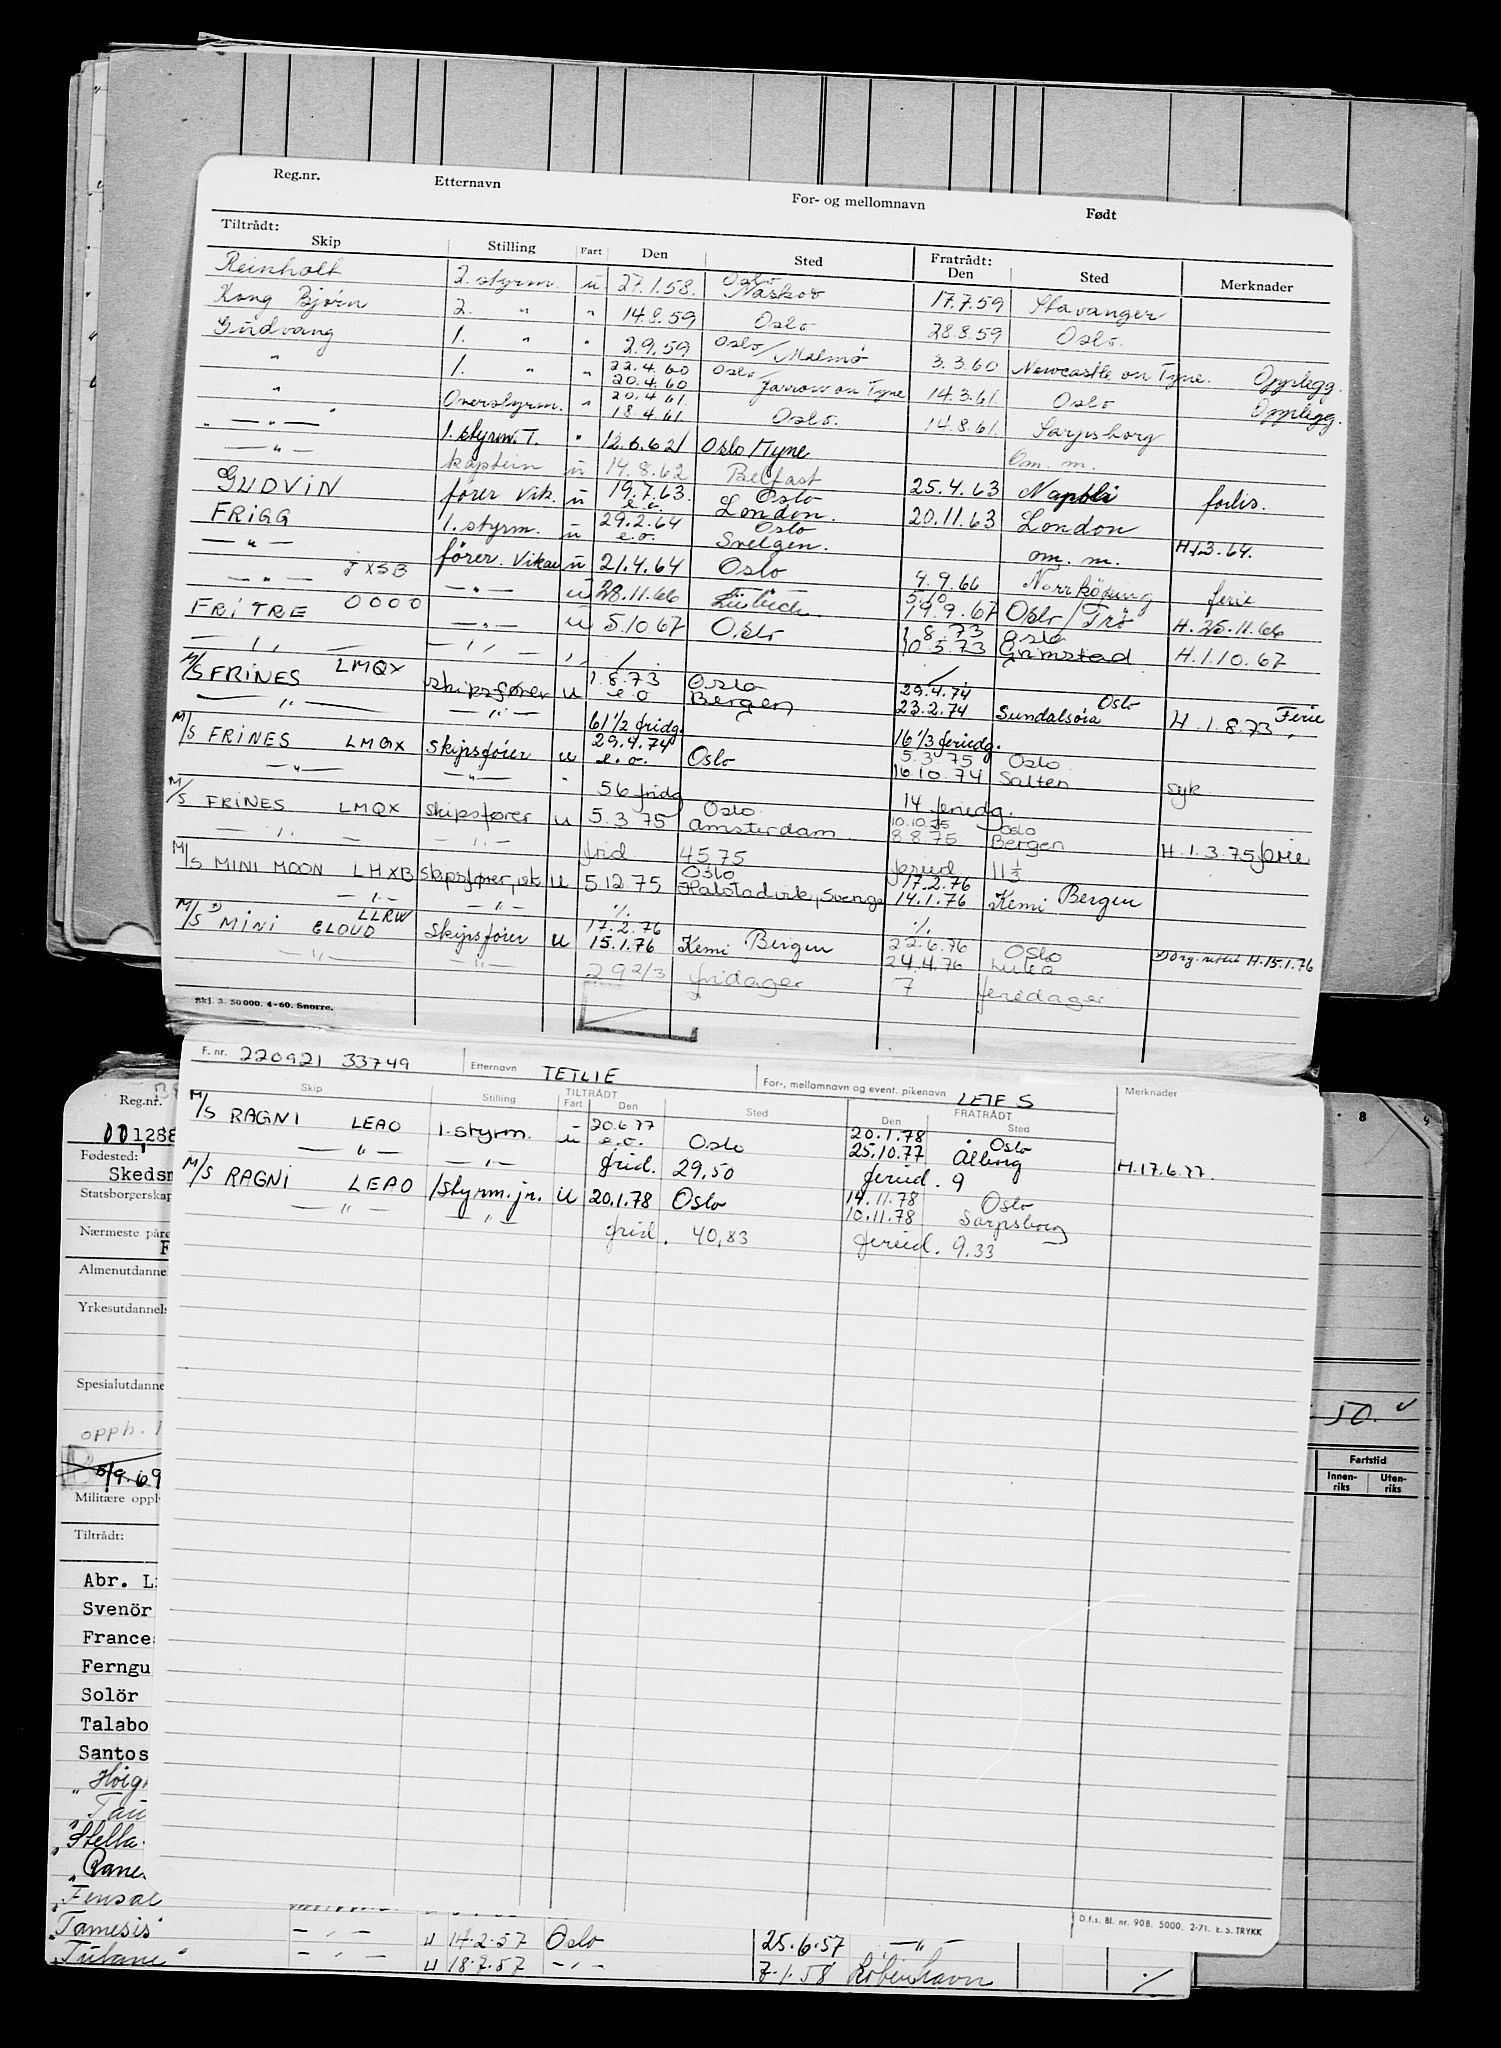 Reg.nr. Etternavn For- og mellomnavn Født
Tiltrådt: Skip Stilling Fart Den Sted Fratrådt: Den Sted Merknader
Reinholt 2. styrm. u 27.1.58. Oslo Naskov 17.7.59 Stavanger
Kong Bjørn 2. " " 14.8.59 Oslo 28.8.59 Oslo.
Gudvang 1. " " 2.9.59 Oslo/Malmö 3.3.60 Newcastle on Tyne. Opplegg.
" 1. " " 22.4.60 20.4.60 Oslo/Jarrow on Tyne 14.3.61. Oslo Opplegg.
" Overstyrm. " 20.4.61. 18.4.61. Oslo. 14.8.61. Sarpsborg
" — " — 1. styrm. T. " 12.6.62 Oslo/Tyne Om. m.
— " — kaptein u 14.8.62 Belfast 25.4.63 Napoli forlis.
GUDVIN fører vik. u 19.7.63. e.o. Oslo London. 20.11.63 London
FRIGG 1. styrm. u 29.2.64 e.o. Oslo Svelgen. om. m. H.1.3.64.
— " — fører. Vikar u 21.4.64 Oslo 9.9.66 Norrköping ferie
— " — JXSB — " — u 28.11.66 Lübeck 5.10 19.9.67 Oslo/Trö H.25.11.66
FRITRE OOOO — " — u 5.10 67 Oslo 1.8.73 Oslo 10.5.73 Grimstad H.1.10.67
— " — — " —
M/S FRINES LMQX skipsfører u 1.8.73 e.o Oslo Bergen 29.4.74 Oslo 23.2.74 Sundalsöra H.1.8.73, Ferie
— " — — " — 61 1/2 fridg. 16 1/3 feriedg.
M/S FRINES LMQX skipsfører u 29.4.74 e.o. Oslo 5.3.75 Oslo 16.10.74 Salten syk
— " — — " — 56 fridg 14 feriedg.
M/S FRINES LMQX skipsfører u 5.3.75 Oslo Amsterdam 10.10.75 Oslo 8.8.75 Bergen H.1.3.75 ferie
— " — — " — frid. 45.75 feried 11 1/3
M/S MINI MOON LHXB skipsfører, vik U 5.12.75 Oslo Halstadvik, Sverige 17.2.76 14.1.76 Kemi Bergen
— " — — " — % %
M/S MINI CLOUD LLRW skipsfører u 17.2.76 15.1.76 Kemi Bergen 22.6.76 24.4.76 Oslo Luleå H.15.1.76
— " — — " — 29 2/3 fridager 7 feriedager
Skj. 3. 50 000. 4-60. Snorre.
F. nr. 220921 33749 Etternavn TETLIE For-, mellomnavn og event. pikenavn LEIF S
Skip Stilling TILTRÅDT Fart Den Sted Den FRATRÅDT Sted Merknader
M/S RAGNI LEAO 1. styrm. u 20.6.77 e.o. Oslo 20.1.78 Oslo 25.10.77 Ålborg H.17.6.77.
— " — — " — frid. 29,50 feried. 9
M/S RAGNI LEAO 1 styrm. jr. U 20.1.78 Oslo 14.11.78 Oslo 10.11.78 Sarpsborg
— " — — " — frid. 40,83 feried. 9.33
D.f.s. Bl. nr. 90B. 5000. 2-71. E. S. TRYKK
Reg.nr.
001288
Fødested:
Skedsm
Statsborgerskap
Nærmeste påre
F
Almenutdanne
Yrkesutdannels
Spesialutdanne
opph. 1
5/9.69
Militære oppl
Tiltrådt:
Abr. L
Svenör
Frances
Ferngu
Solör
Talabo
Santos
" Höig
" Tau
" Stella
" Rane
" Fensal
" Tamesis — " — u 14.2.57 Oslo 25.6.57 — " —
" Tubane " — " — u 18.7.57 — " — 7.1.58 København
8
50.
Fartstid
Innenriks Utenriks